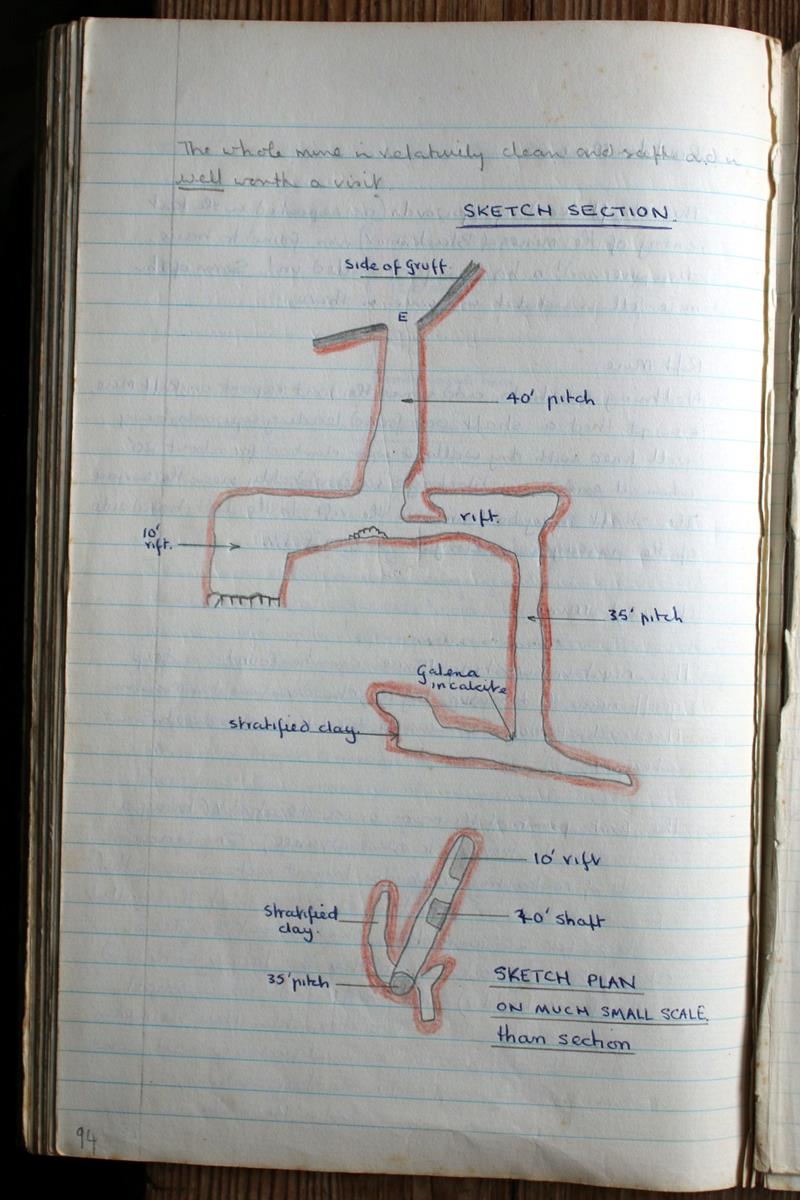 The whole mine is relatively clean and safe and is
well worth a visit.
SKETCH SECTION
side of Gruff.
E
40' pitch
rift.
10'
rift.
35' pitch
Galena
in calcite
stratified clay.
10' rift
stratified
clay.
40' shaft
35' pitch
SKETCH PLAN
ON MUCH SMALL SCALE.
than section
94